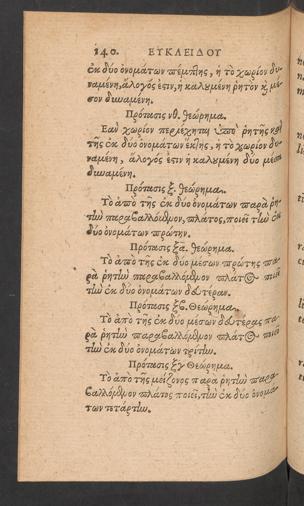 140. ΕΥΚΛΕΙΔΟΥ
ἐκ δύο ὀνομάτων πέμπτης, ἡ τὸ χωρίον δυ-
ναμένη, ἄλογός ἐστιν, ἡ καλουμένη ῥητὸν κỳ μέ-
σον δυναμένη.
Πρότασις νθ. θεώρημα.
Εαν χωρίον περιέχηται ὑπὸ ῥητῆς καὶ
τῆς ἐκ δύο ὀνομάτων ἕκτης, ἡ τὸ χωρίον δυ-
ναμένη, ἄλογός ἐστιν ἡ καλουμένη δύο μέσα
δυναμένη.
Πρότασις ξ. θεώρημα.
Τὸ ἀπὸ τῆς ἐκ δύο ὀνομάτων παρὰ ῥη-
τὴν παραβαλλόμενον, πλάτος, ποιεῖ τὴν ἐκ
δύο ὀνομάτων πρώτην.
Πρότασις ξα. θεώρημα.
Τὸ ἀπὸ τῆς ἐκ δύο μέσων πρώτης πα-
ρὰ ῥητὴν παραβαλλόμενον πλάτος ποιεῖ
τὴν ἐκ δύο ὀνομάτων δευτέραν.
Πρότασις ξβ. Θεώρημα.
Τὸ ἀπὸ τῆς ἐκ δύο μέσων δευτέρας πα-
ρὰ ῥητὴν παραβαλλόμενον πλάτος ποιεῖ
τὴν ἐκ δύο ὀνομάτων τρίτην.
Πρότασις ξγ Θεώρημα.
Τὸ ἀπὸ τῆς μείζονος παρὰ ῥητὴν παρα-
βαλλόμενον πλάτος ποιεῖ, τὴν ἐκ δύο ὀνομά-
των τετάρτην.